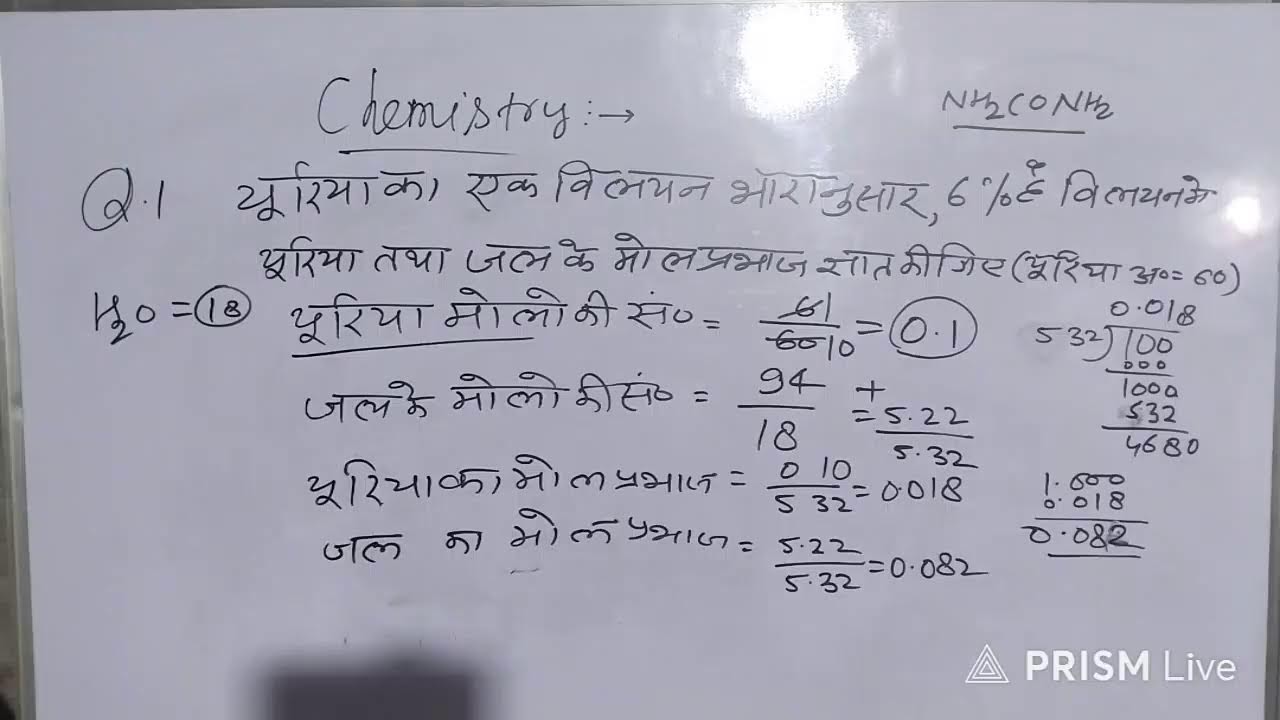 Chemistry :→
NH₂CONH₂
Q.1 यूरिया का एक विलयन भारानुसार, 6% है विलयन के
यूरिया तथा जल के मोल प्रभाज ज्ञात कीजिए (यूरिया अ० = 60)
H₂O = 18 यूरिया मोलो की सं० = 6/60 10 = 0.1
जल के मोलो की सं० = 94/18 = + 5.22/5.32
यूरिया का मोल प्रभाज = 0 10/5 32 = 0.018
जल का मोल प्रभाज = 5.22/5.32 = 0.082
0.018
532)100
000
1000
532
4680
1.000
0.018
0.082
PRISM Live